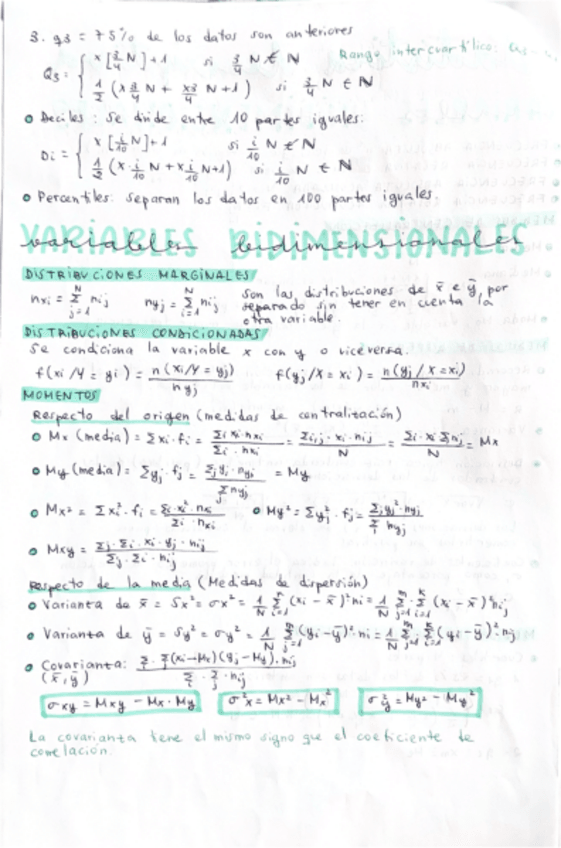 3. q3 = 75% de los datos son anteriores
Rango intercuartílico: Q3 -
Q3 = { x[3/4 N]+1 si 3/4 N ∉ N
1/2 (x 3/4 N + x 3/4 N+1) si 3/4 N ∈ N
• Deciles: se divide entre 10 partes iguales.
Di = { x[i/10 N]+1 si i/10 N ∉ N
1/2 (x i/10 N + x i/10 N+1) si i/10 N ∈ N
• Percentiles: separan los datos en 100 partes iguales
VARIABLES BIDIMENSIONALES
variables bidimensionales
DISTRIBUCIONES MARGINALES
nxi = Σ(j=1..N) nij nyj = Σ(i=1..N) nij son las distribuciones de x̄ e ȳ, por
separado sin tener en cuenta la
otra variable.
DISTRIBUCIONES CONDICIONADAS
Se condiciona la variable x con y o viceversa.
f(xi/Y = yi) = n(xi/Y = yj) / nyj f(yj/X = xi) = n(yj/X = xi) / nxi
MOMENTOS
Respecto del origen (medidas de centralización)
• Mx (media) = Σxi·fi = Σi xi·nxi / Σi·nxi = Σi,j·xi·nij / N = Σi·xi Σnij / N = Mx
• My (media) = Σyj·fj = Σj yj·nyj / Σj nyj = My
• Mx² = Σxi²·fi = Σi·xi²·nxi / Σi·nxi • My² = Σyj²·fj = Σj yj²·nyj / Σj nyj
• Mxy = Σj·Σi·xi·yj·nij / Σj·Σi·nij
Respecto de la media (Medidas de dispersión)
• Varianza de x̄ = Sx² = σx² = 1/N Σ(i=1) (xi - x̄)² ni = 1/N Σ(j=1) Σ(i=1) (xi - x̄)² nij
• Varianza de ȳ = Sy² = σy² = 1/N Σ(i=1) (yi - ȳ)² ni = 1/N Σ(j=1) Σ(i=1) (yi - ȳ)² nij
• Covarianza: Σi·Σj (xi - Mx)(yj - My)·nij / Σi·Σj·nij
(x̄, ȳ)
σxy = Mxy - Mx·My σ²x = Mx² - Mx² σ²y = My² - My²
La covarianza tiene el mismo signo que el coeficiente de
correlación.